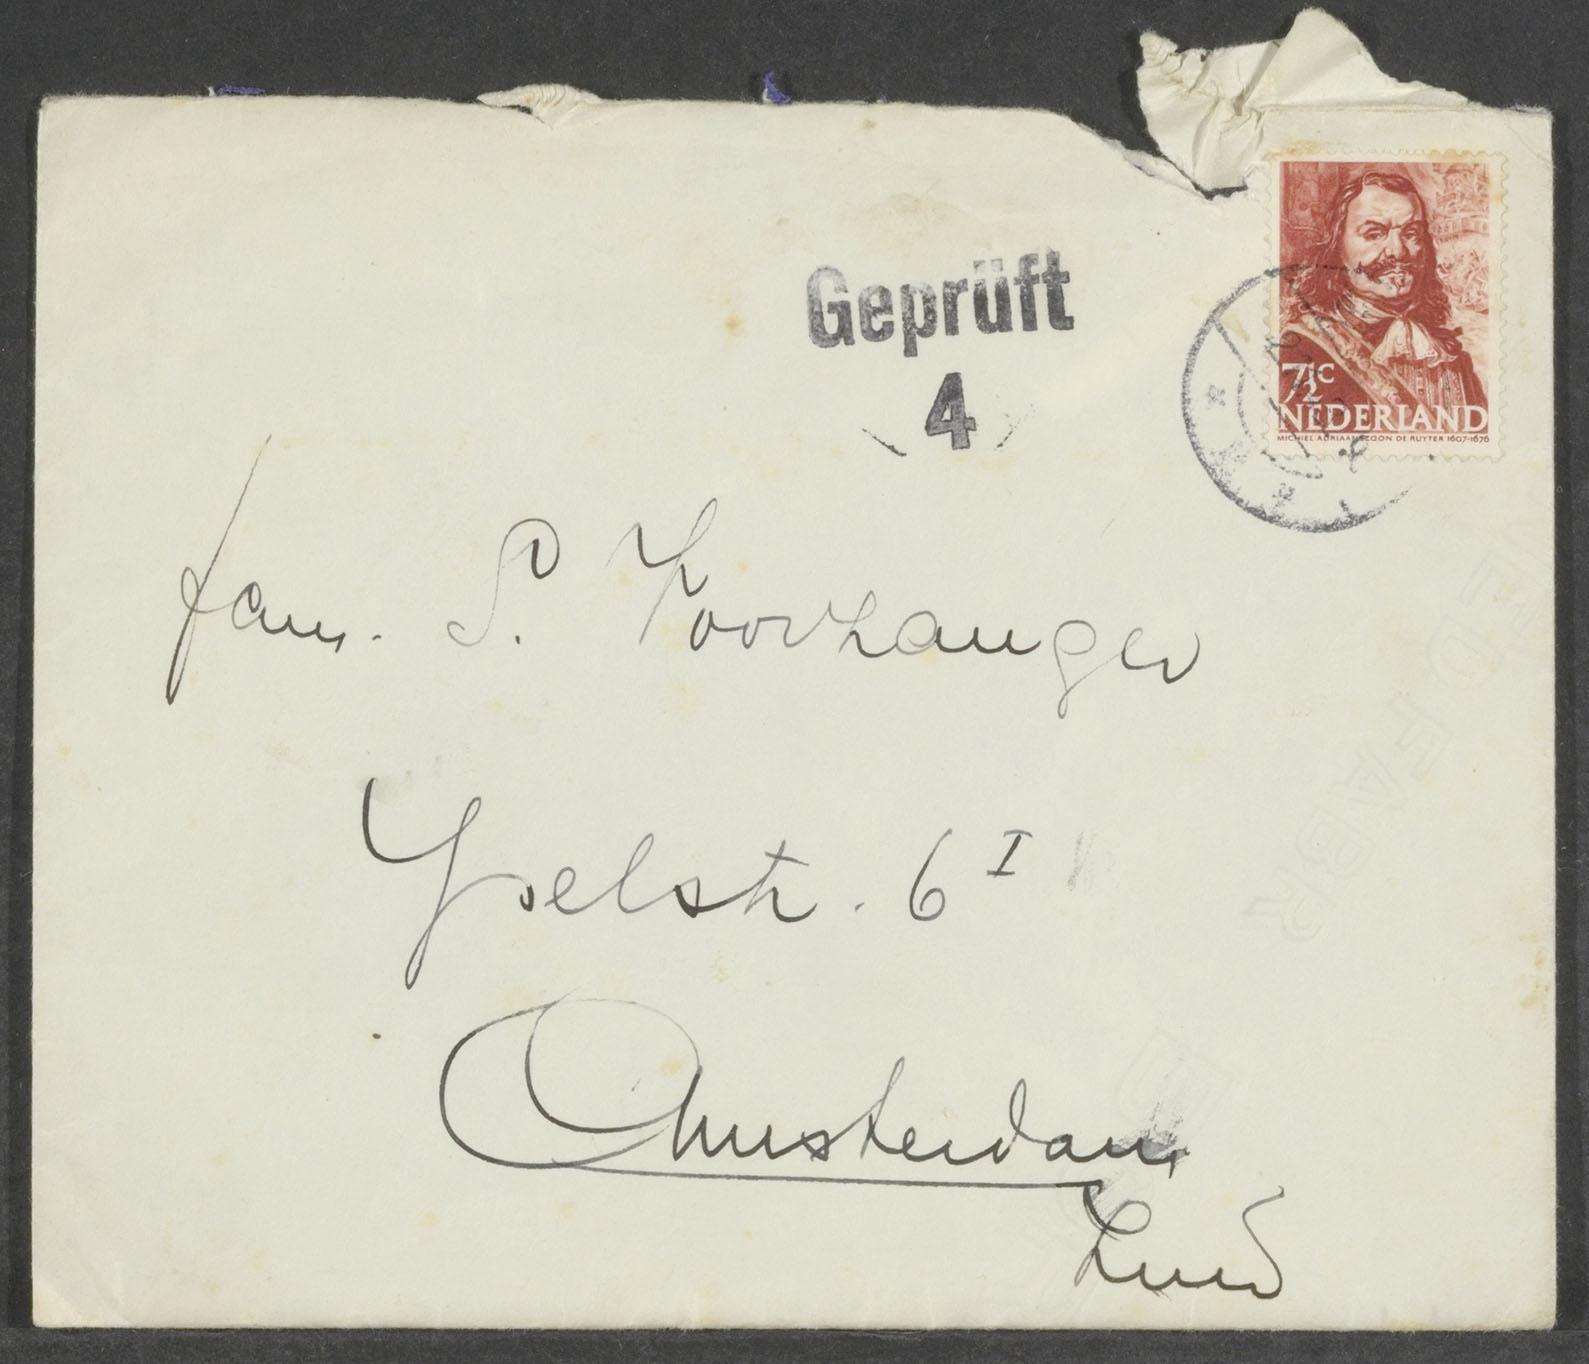 Geprüft
4
7½C
NEDERLAND
MICHIEL ADRIAANSZOON DE RUYTER 1607-1676
fam. S. Voorzanger
IJselstr. 6 I
Amsterdam
Zuid